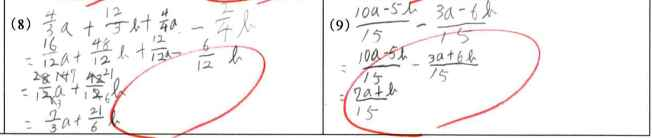 (8) 4/3 a + 12/3 b + 4/4 a - 2/4 b
= 16/12 a + 48/12 b + 12/12 a - 6/12 b
28 14 7/12 a + 42 21/12 6 b
= 7/3 a + 21/6 b
(9) 10a-5b/15 - 3a-6b/15
= 10a-5b/15 - 3a+6b/15
= 7a+b/15